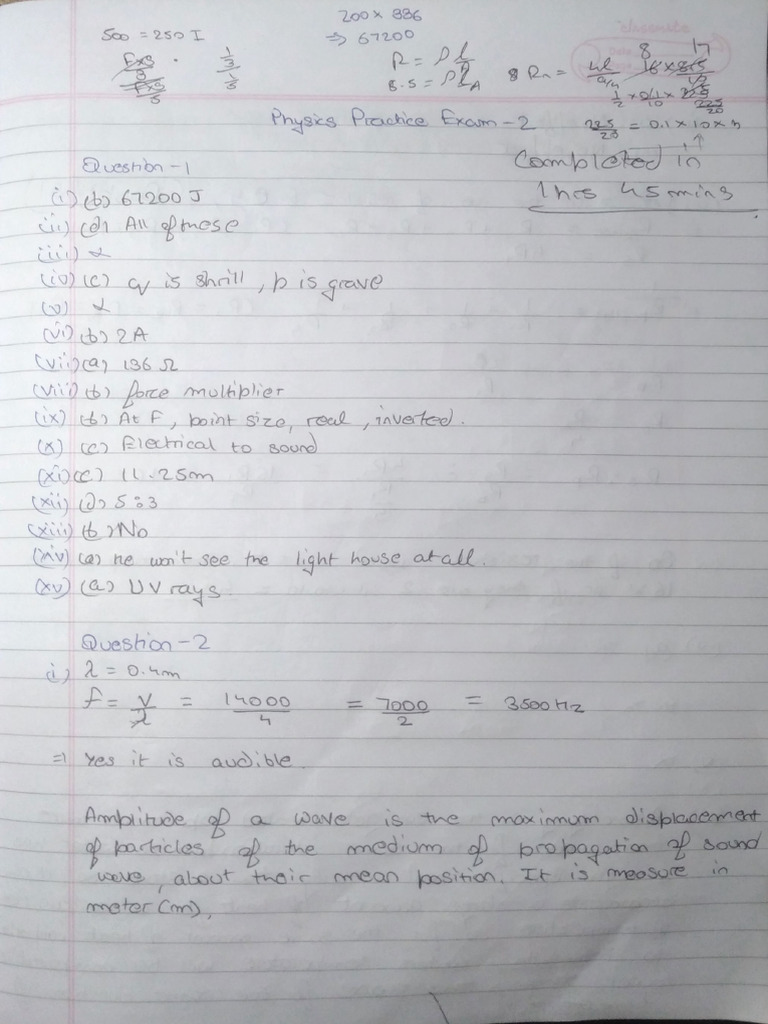 200 x 336
500 = 250 I
⇒ 67200
R = ρl
8.5 = ρl/A
Physics Practice Exam - 2
Completed in
1 hrs 45 mins
Question - 1
(i) (b) 67200 J
(ii) (d) All of these
(iii) α
(iv) (c) q is shrill, p is grave
(v) α
(vi) (b) 2A
(vii) (a) 136 Ω
(viii) (b) force multiplier
(ix) (b) At F, point size, real, inverted.
(x) (c) Electrical to sound
(xi) (c) 11.25m
(xii) (d) 5:3
(xiii) (b) No
(xiv) (a) he won't see the light house at all.
(xv) (a) UV rays.
Question - 2
i) λ = 0.4m
f = V/λ = 14000/4 = 7000/2 = 3500 Hz
⇒ Yes it is audible.
Amplitude of a wave is the maximum displacement
of particles of the medium of propagation of sound
wave, about their mean position. It is measure in
meter (m),